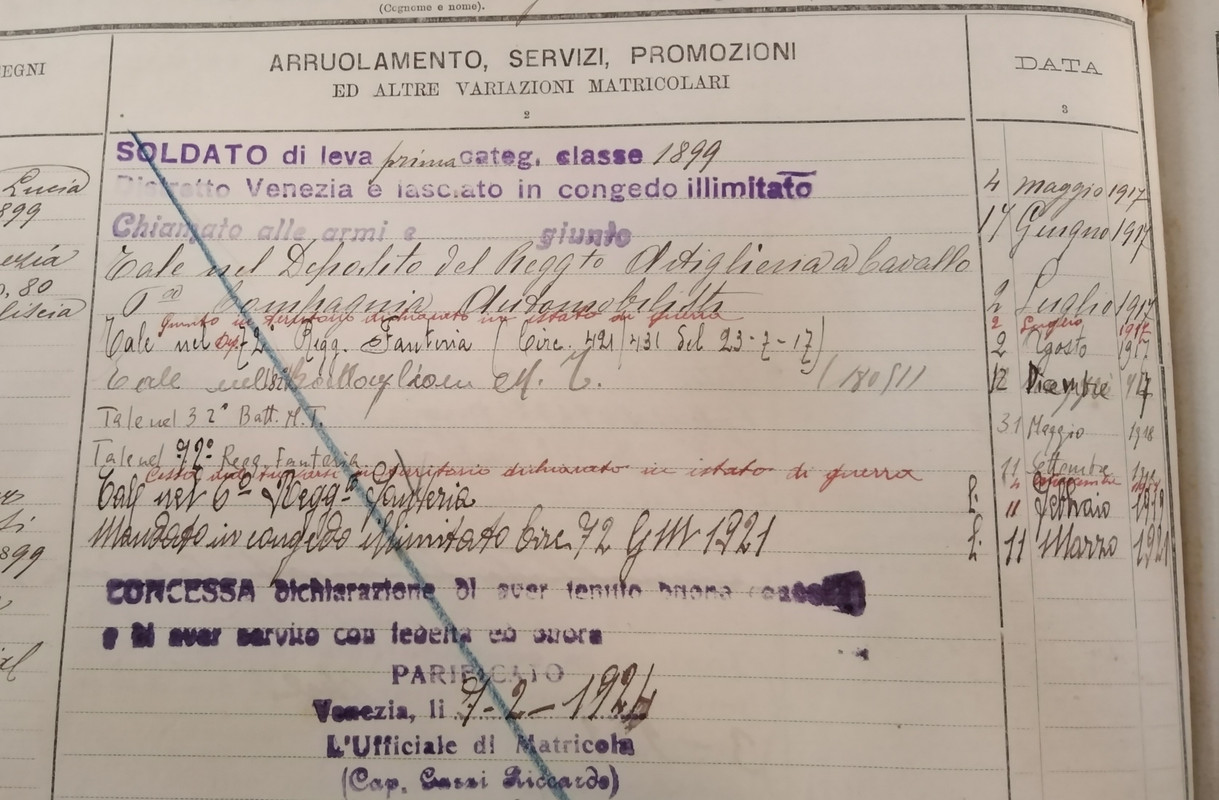 (Cognome e nome).
EGNI
ARRUOLAMENTO, SERVIZI, PROMOZIONI
ED ALTRE VARIAZIONI MATRICOLARI
2
DATA
3
SOLDATO di leva prima categ. classe 1899
Distretto Venezia e lasciato in congedo illimitato
4 Maggio 1917
Lucia
899
Chiamato alle armi e giunto
17 Giugno 1917
Tale nel Deposito del Reggto Artiglieria a Cavallo
ezia
, 80
liscia
Compagnia Automobilisti
2 Luglio 1917
Giunto in territorio dichiarato in istato di guerra
2 Luglio 1917
Tale nel Dep. 72 Regg. Fanteria (Circ. 421/431 del 23-7-17)
2 Agosto 1917
Tale M. T.
12 Dicembre 917
Tale nel 32° Batt. M.T.
31 Maggio 1918
Tale nel 72° Regg. Fanteria
11 Settembre
in territorio dichiarato in istato di guerra
Tale nel 6° Regg. Fanteria
11 Febbraio 1919
Mandato in congedo illimitato Circ. 72 G M 1921
11 Marzo 1921
899
CONCESSA dichiarazione di aver tenuto buona
e di aver servito con fedeltà ed onore
PARIFICATO
Venezia, li 7-2-1924
L'Ufficiale di Matricola
(Cap. Riccardo)